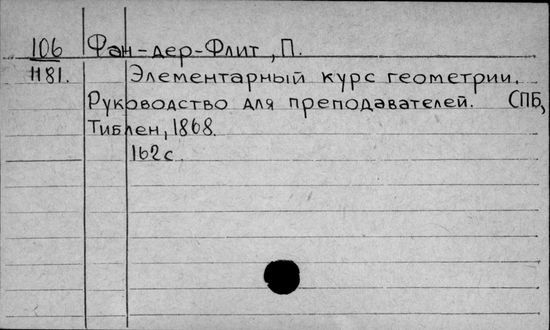 106 Фан-дер-Флит, П.
1181. Элементарный курс геометрии.
Руководство для преподавателей. СПБ,
Тиблен, 1868.
162с.